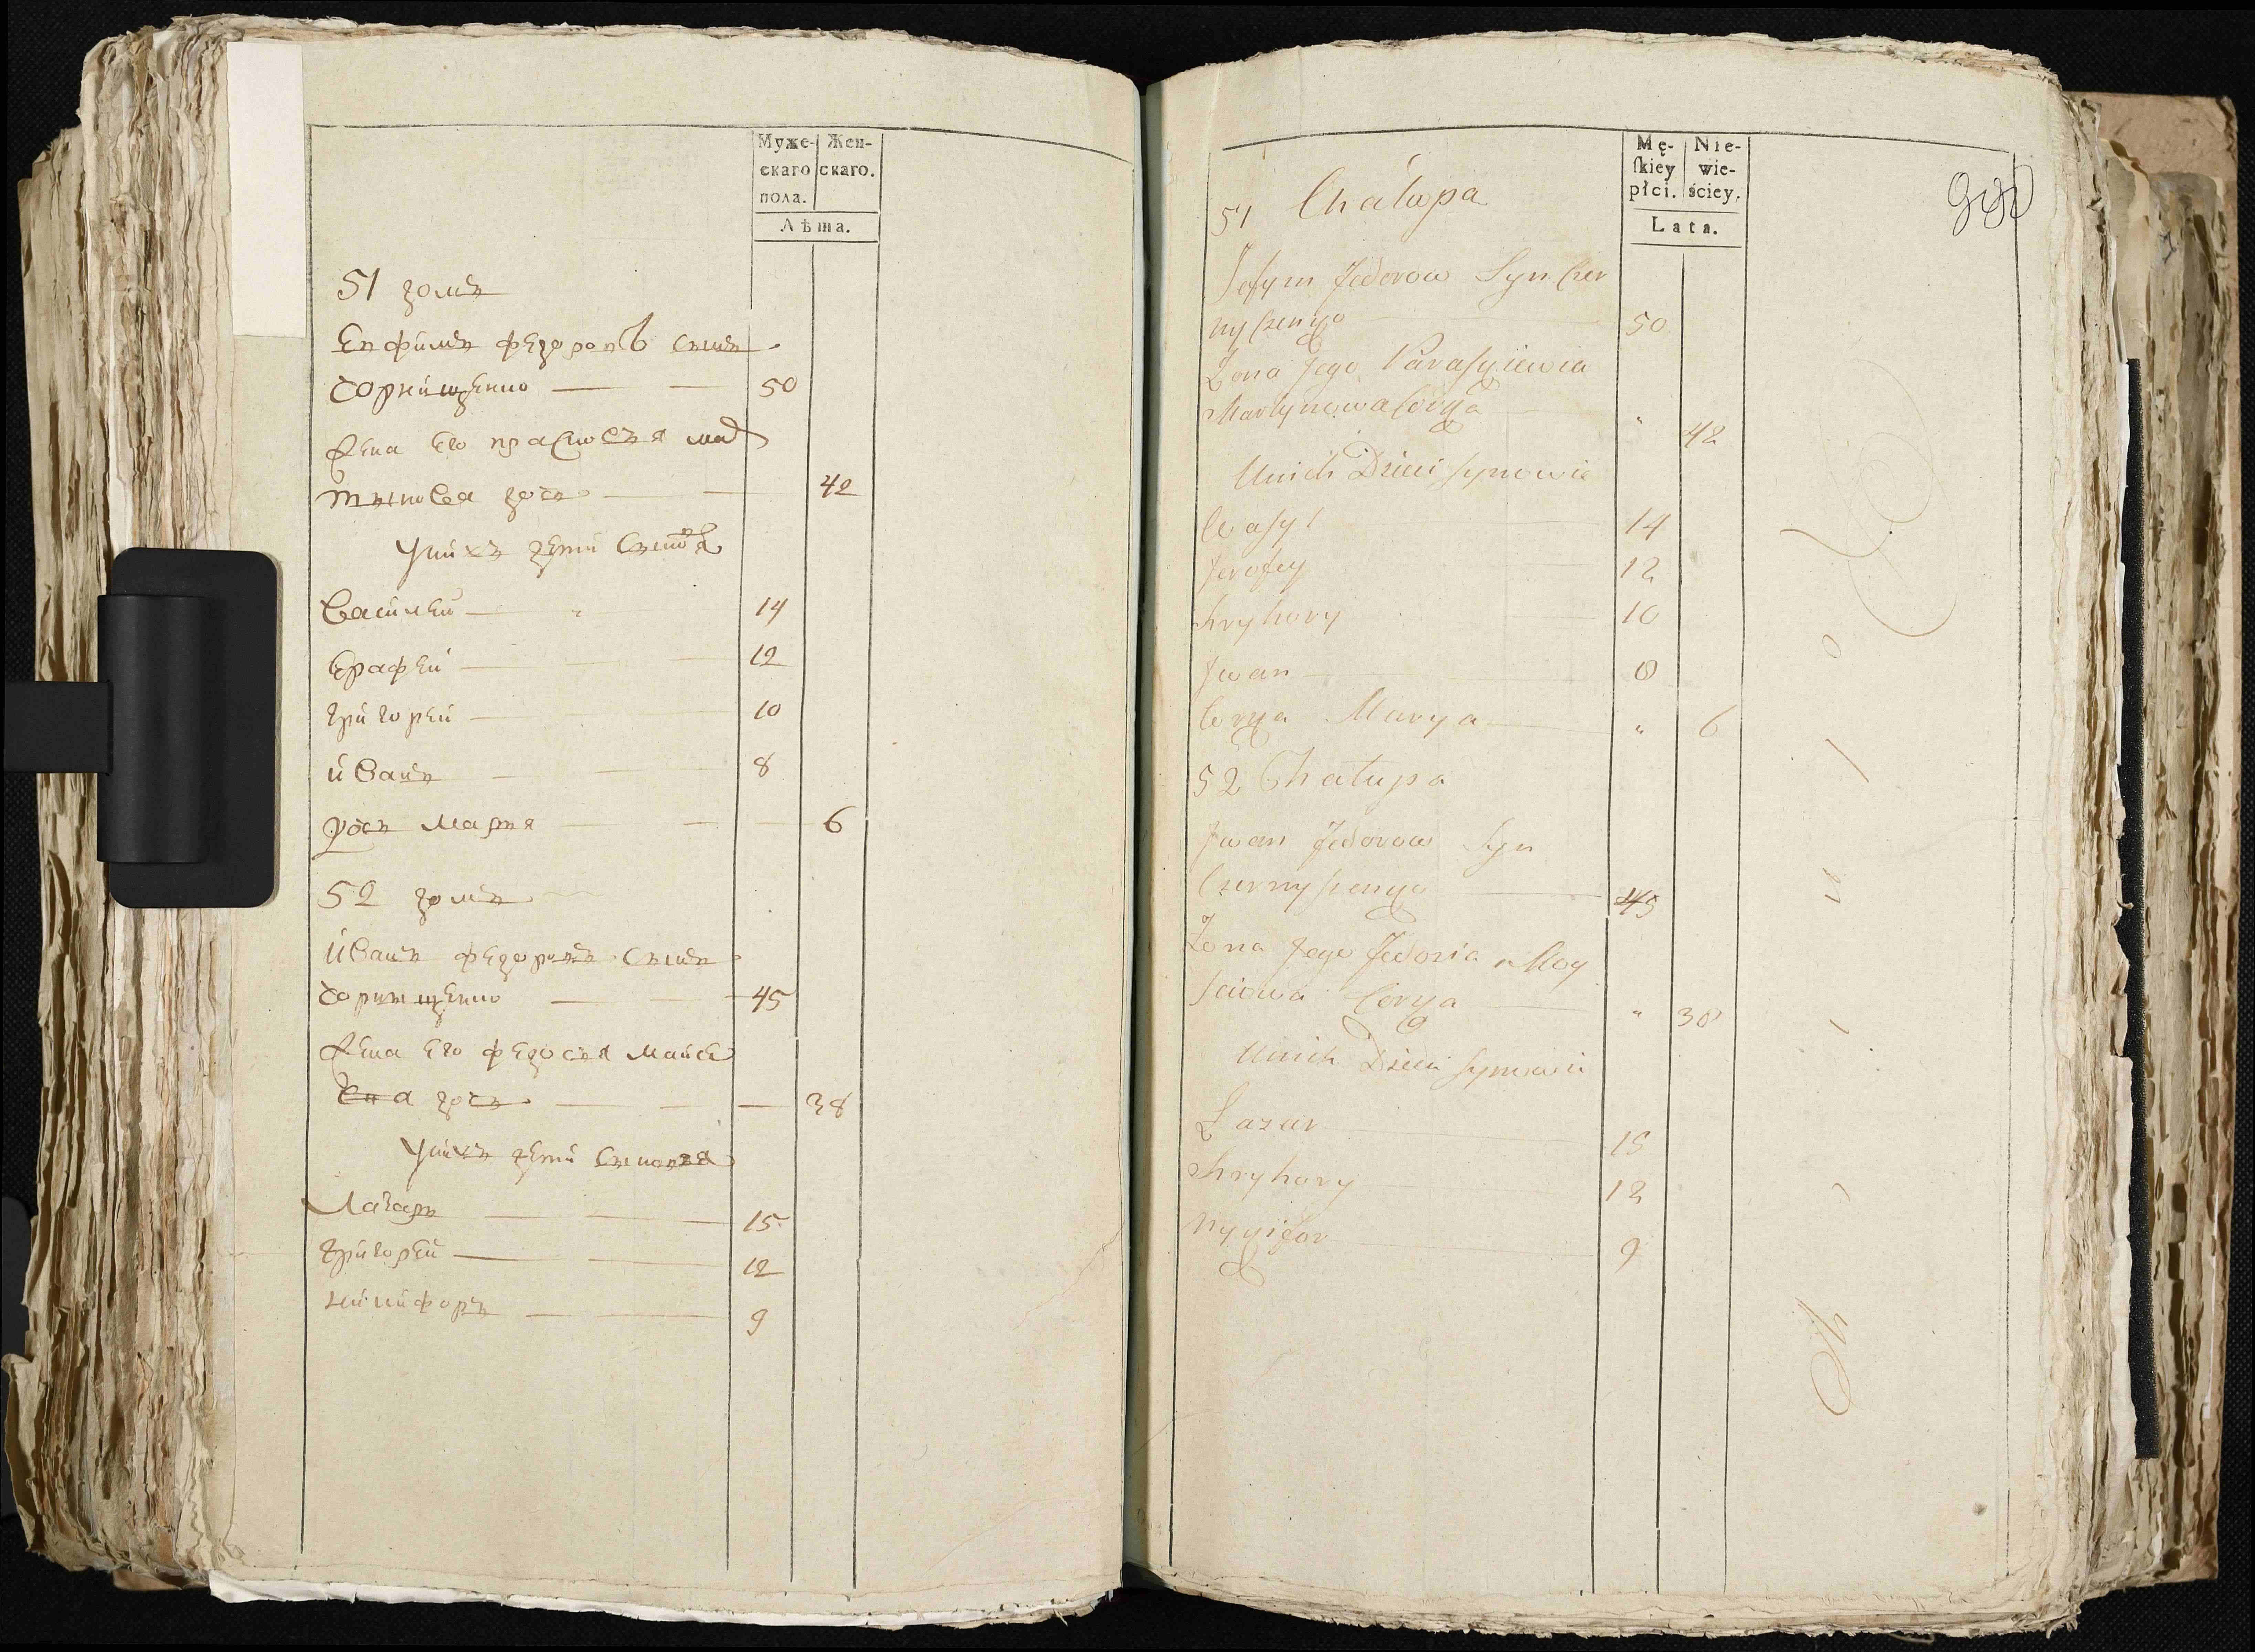 Муже- Жен-
скаго скаго.
пола.
Лѣта.
51 домъ
Евфимъ федоровъ сынъ
Чорнищенко 50
Жена его прасковья мар
тынова дочь 42
У нихъ дети сыновя
Василей 14
Ерафей 12
Григорей 10
Иванъ 8
Дочь Маря 6
52 домъ
Иванъ федоровъ сынъ
Чорнищенко 45
Жена его федосья Майсе
ева дочь 38
У нихъ дети сыновя
Лазарь 15
Григорей 12
Никифоръ 9
Mę- Nie-
skiey wie-
płci. ściey.
Lata.
51 Chałupa
Jefym Fedorow Syn Czer
nyszenko 50
Żona Jego Paraskiewia
Martynowa Corka " 42
Unich Dzieci synowie
Wasyl 14
Jerofey 12
Hryhory 10
Jwan 8
Corka Marya " 6
52 Chałupa
Jwan Fedorow Syn
Czernyszenko 45
Żona Jego Fedosia Moy
seiowa Corka " 38
Unich Dzieci synowie
Łazar 15
Hryhory 12
Nykifor 9